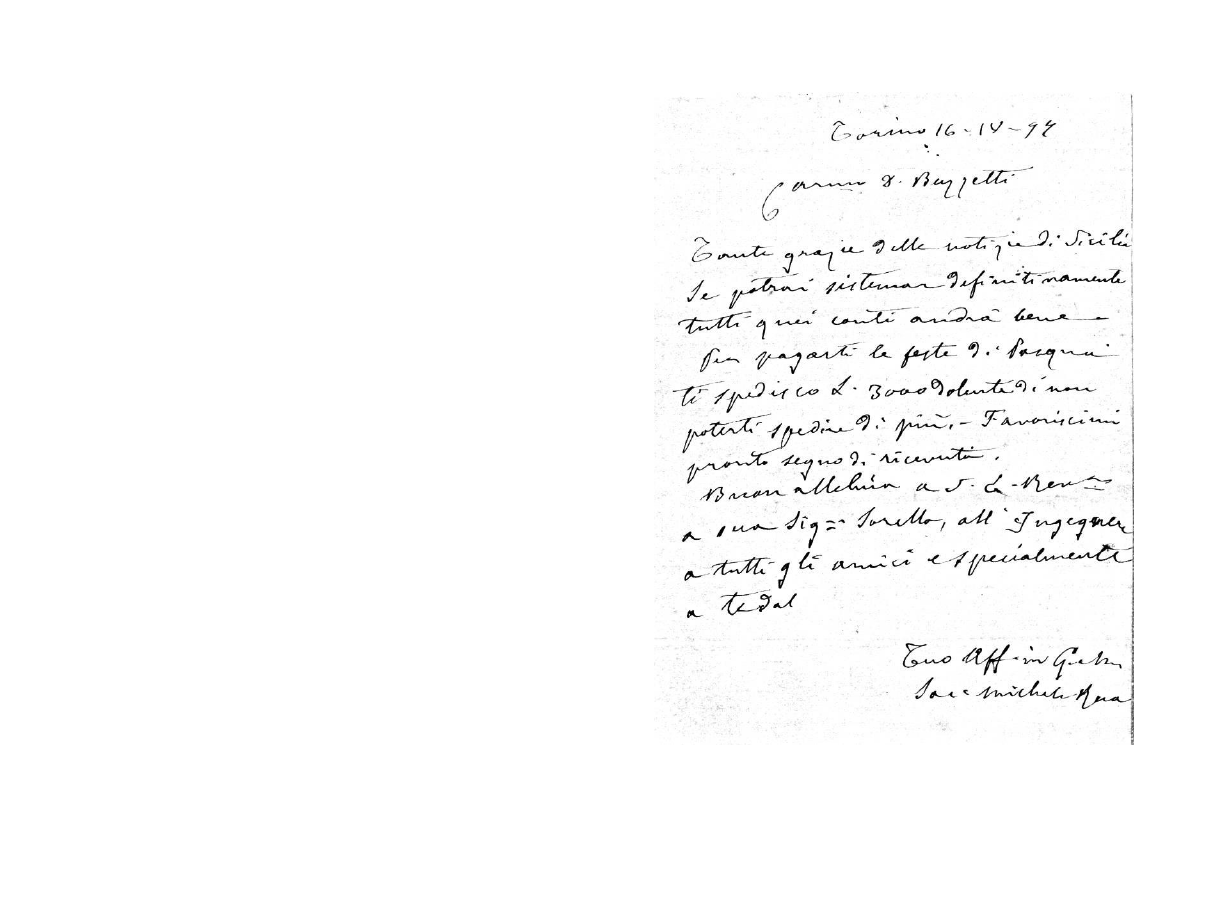 Torino 16-IV-97
Carmo D. Buzzetti
Tante grazie delle notizie di Sicilia
Se potrai sistemar definitivamente
tutti quei conti andrà bene -
Per pagarti le feste di Pasqua
ti spedisco L. 3000 dolente di non
poterti spedire di più. - Favoriscimi
pronto segno di ricevuta.
Buon alleluia a S. E. Rev.ma
a sua Sig.ra Sorella, all' Ingegnere
a tutti gli amici e specialmente
a te dal
Tuo Aff.mo in G. e M.
Sac. Michele Rua